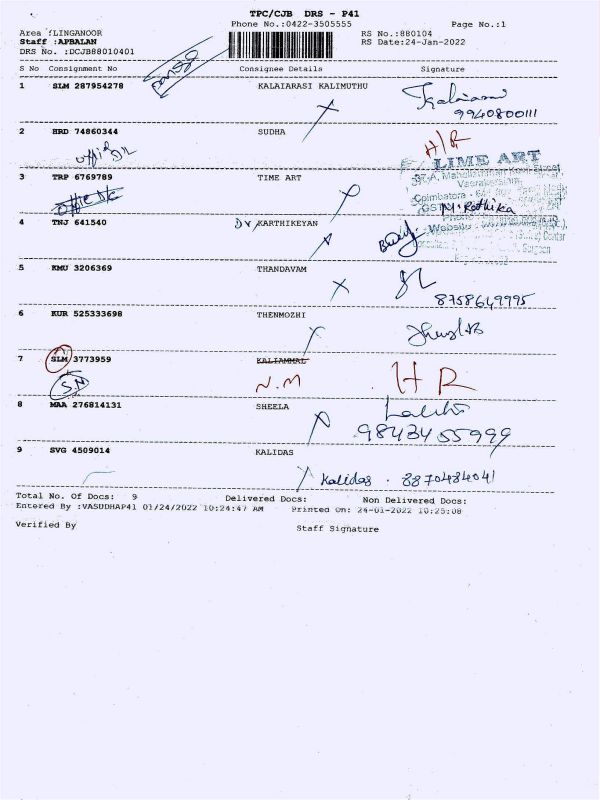 TPC/CJB DRS - P41
Phone No.:0422-3505555 Page No.:1
Area :LINGANOOR RS No.:880104
Staff :APBALAN RS Date:24-Jan-2022
DRS No. :DCJB88010401
S No Consignment No Consignee Details Signature
1 SLM 287954278 KALAIARASI KALIMUTHU Kalaiarasi
9940800111
2 BRD 74860344 SUDHA H/R
LIME ART
3 TRP 6769789 TIME ART
Coimbatore
M. Rathika
4 TNJ 641540 Dr KARTHIKEYAN
Website
5 KMU 3206369 THANDAVAM
8758649995
6 KUR 525333698 THENMOZHI
7 SLM 3773959 KALIAMMAL
S.N N.M H R
8 MAA 276814131 SHEELA
9843455999
9 SVG 4509014 KALIDAS
Kalidas . 8870484041
Total No. Of Docs: 9 Delivered Docs: Non Delivered Docs:
Entered By :VASUDHAP41 01/24/2022 10:24:47 AM Printed On: 24-01-2022 10:25:08
Verified By Staff Signature